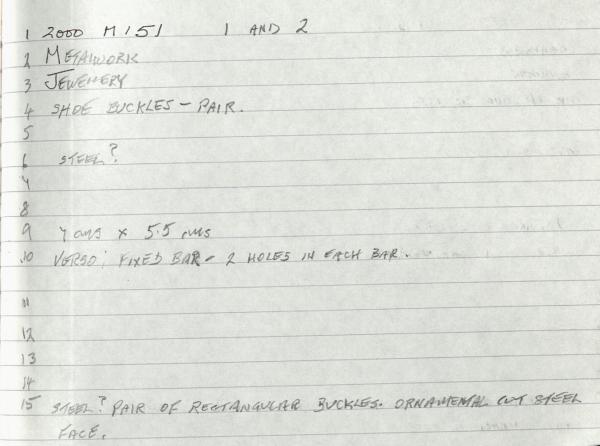 1 2000 M 151 1 AND 2
2 METALWORK
3 JEWELLERY
4 SHOE BUCKLES - PAIR.
5
6 STEEL?
7
8
9 7 cms x 5.5 cms
10 VERSO; FIXED BAR - 2 HOLES IN EACH BAR.
11
12
13
14
15 STEEL? PAIR OF RECTANGULAR BUCKLES. ORNAMENTAL CUT STEEL
FACE.